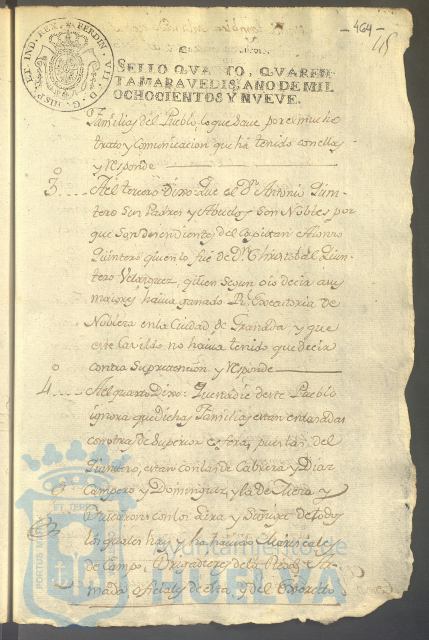 464
FERDIN. VII. D. G. HISP. ET IND. REX
SELLO QVARTO, QVAREN
TA MARAVEDIS, AÑO DE MIL
OCHOCIENTOS Y NVEVE.
Familias del Pueblo lo que save por el mucho
trato, y Comunicacion que há tenido con ellas
y responde
3.º Al tercero Dixo: Que el Dn Antonio Quin-
tero sus Padres y Abuelos son Nobles por
que son descendientes del Capitan Alonso
Quintero quien lo fué de Dn Christobal Quin-
tero Velazquez, quien segun oió decir a sus
maiores, havia ganado Rl. Executoria de
Nobleza en la Ciudad de Granada, y que
este Cavildo no havia tenido que decir
contra su pretencion y responde
4.º Al quarto Dixo: Que nadie de este Pueblo
ignora que dichas Familias estan enlazadas
con otras de Superior esfera, pues las del
Quintero, estan con las de Cabrera, y Diaz
Campero y Dominguez, y la de y
con los y Zuñiga de todos
los quales hay y ha havido
de Campo, Brigadieres de la Rl. Ar-
mada y de esta, y del Exercito
Ayuntamiento de
HUELVA
PORTUS
ET TERRÆ